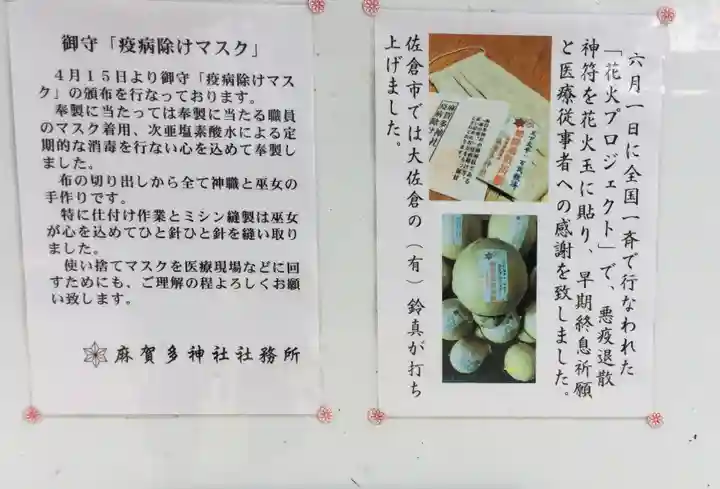 御守「疫病除けマスク」
４月１５日より御守「疫病除けマス
ク」の頒布を行なっております。
奉製に当たっては奉製に当たる職員
のマスク着用、次亜塩素酸水による定
期的な消毒を行ない心を込めて奉製し
ました。
布の切り出しから全て神職と巫女の
手作りです。
特に仕付け作業とミシン縫製は巫女
が心を込めてひと針ひと針を縫い取り
ました。
使い捨てマスクを医療現場などに回
すためにも、ご理解の程よろしくお願
い致します。
麻賀多神社社務所
六月一日に全国一斉で行なわれた
「花火プロジェクト」で、悪疫退散
神符を花火玉に貼り、早期終息祈願
と医療従事者への感謝を致しました。
佐倉市では大佐倉の（有）鈴真が打ち
上げました。